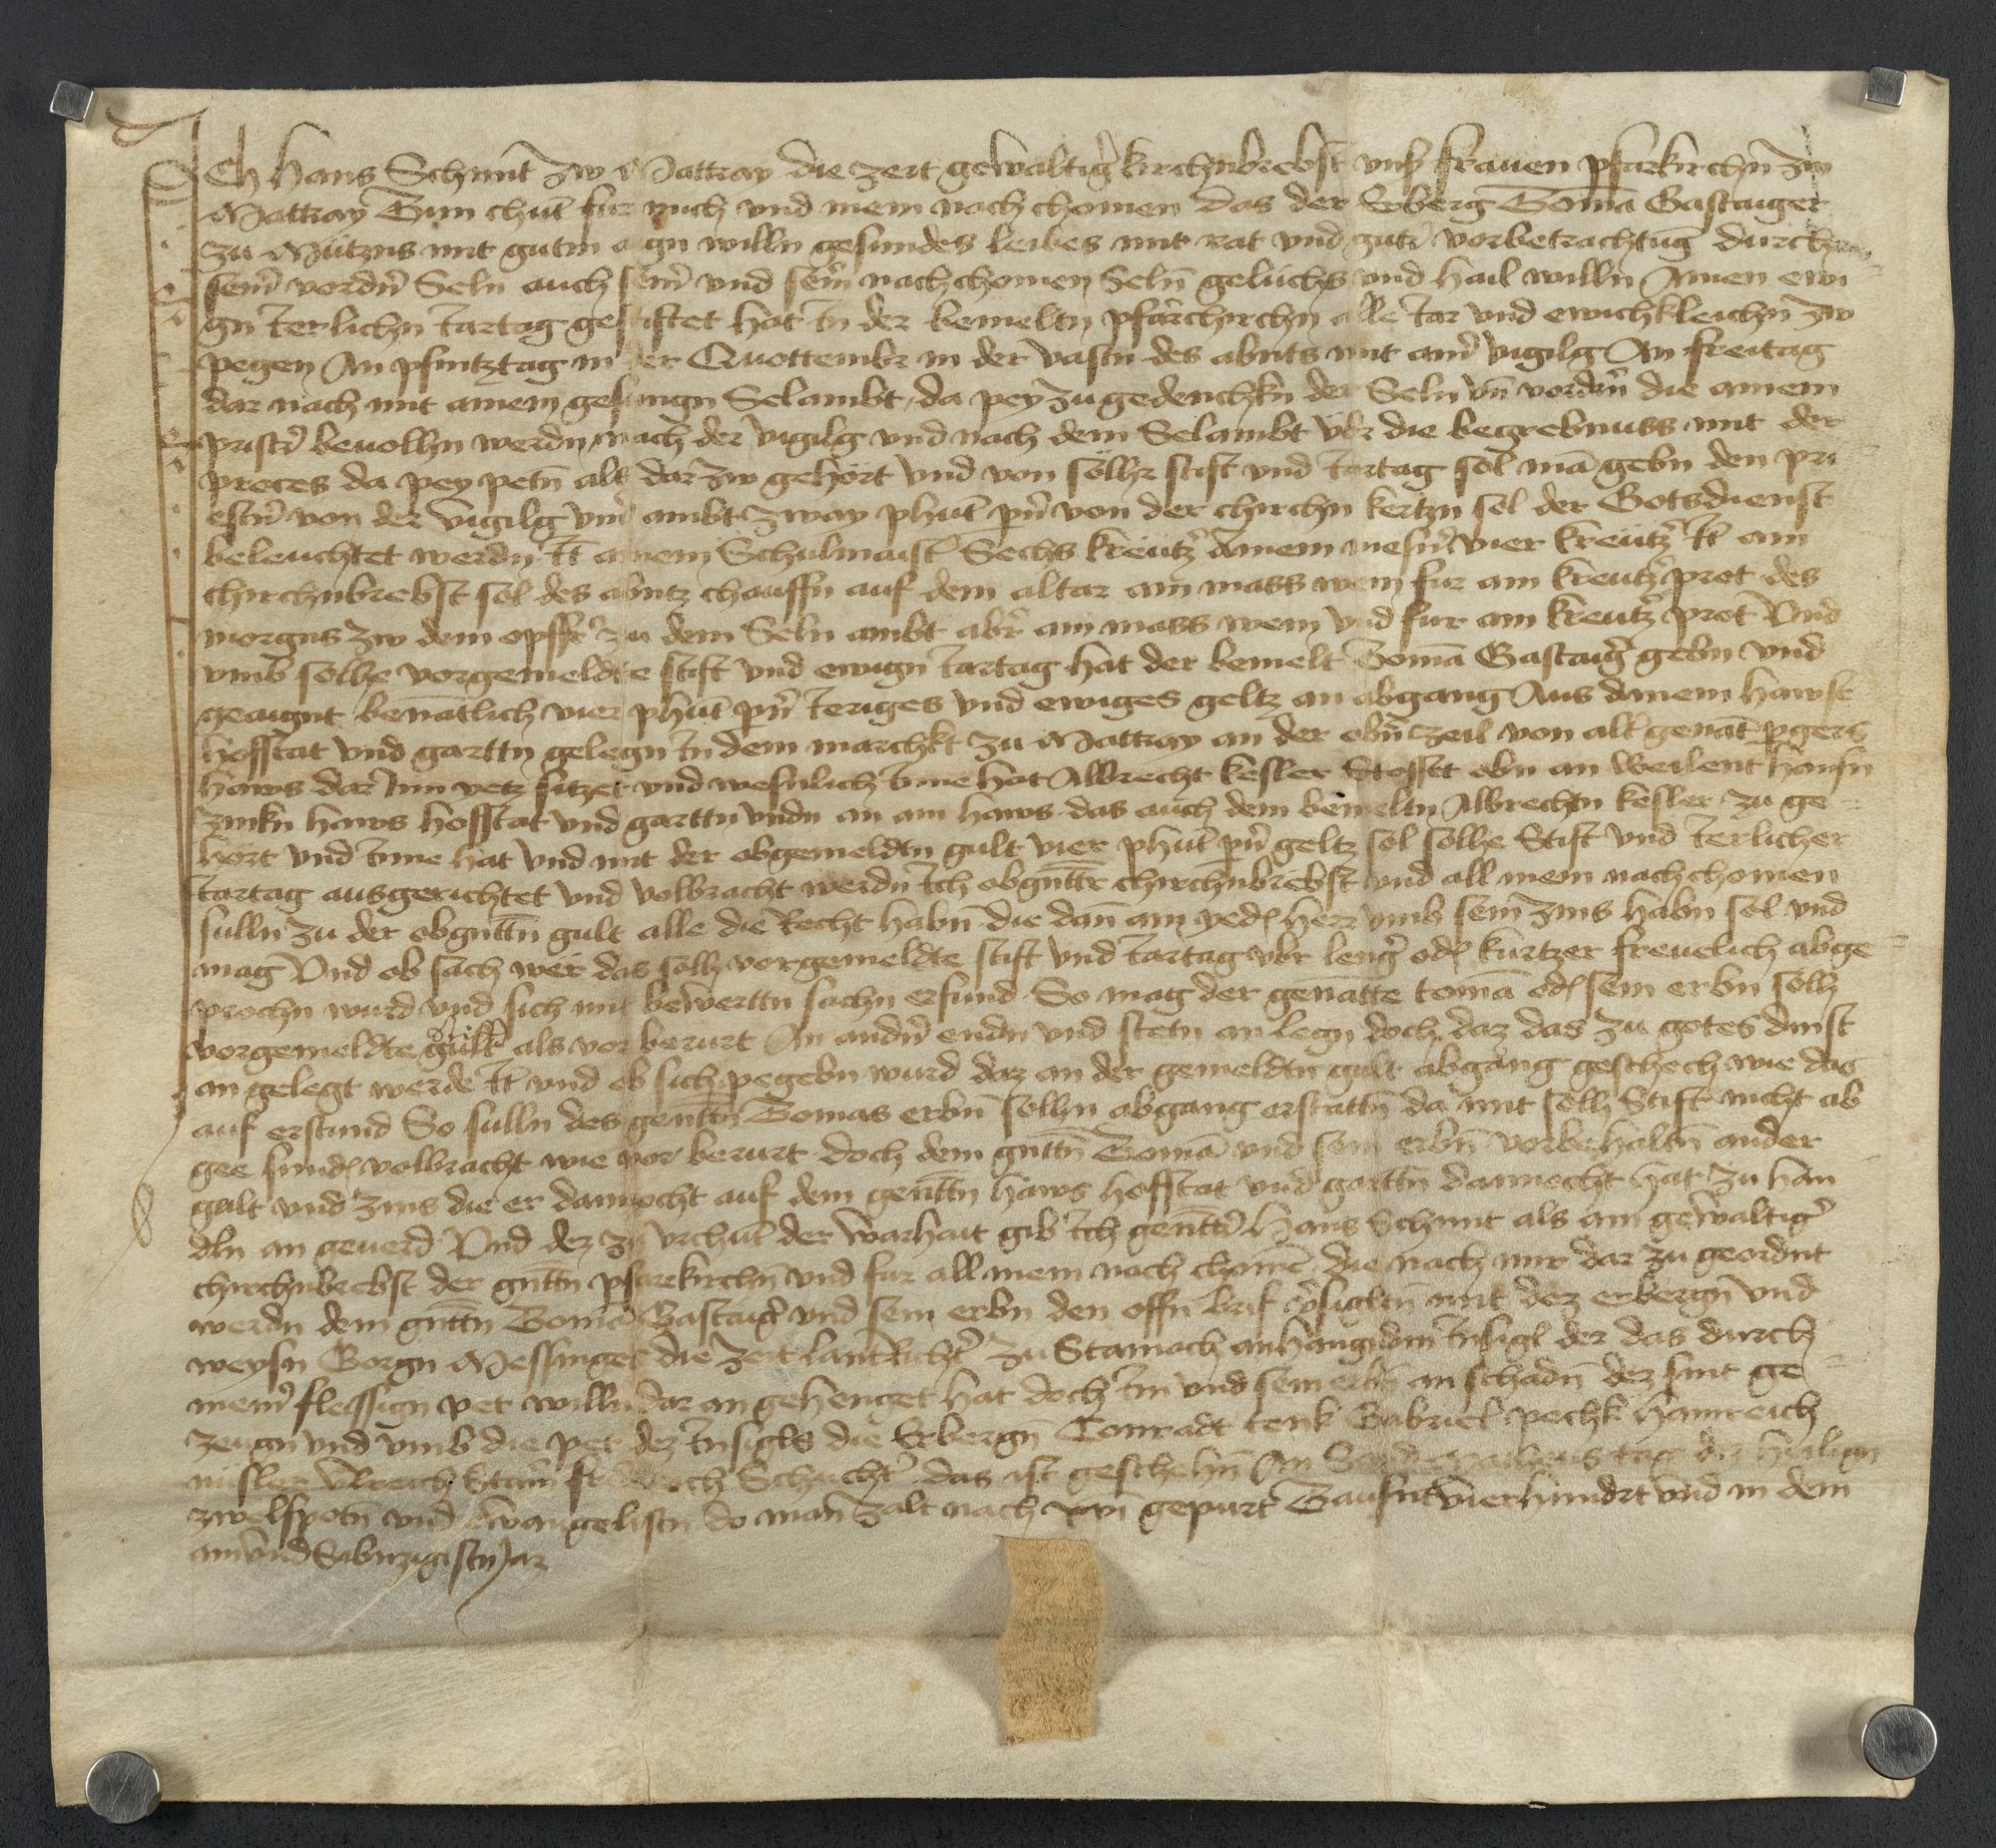 Ich Hans Schmit zw Mattray die zeit gewaltiger kirchnbrebst vnser frauen pfarkirchn zw
Mattray Tun chut fur mich vnd mein nach chomen das der Erberg Toman Gastaiger
zu Mützns mit gutm aign willn gesundes leibes mit rat vnd guter vorbetrachtung durch
seiner vordern Seln auch seiner vnd seiner nachchomen Seln gelüchs vnd hail willn Ainen ewi
gn ierlichn iartag gestiftet hat in der bemeltn pfarchirchn alle iar vnd ewichkleichn zw
pegen An pfintztag in der Quottember in der vastn des abnts mit ainer vigilg An freitag
dar nach mit ainem gesungn Selambt da pey zu gedenchkn der Seln vn vordern die ainem
pristr beuolhn werdn nach der vigilg vnd nach dem Selambt vbr die begrebnuss mit der
preces da pey petn als dar zw gehört vnd von söllhr stift vnd iartag sol man gebn den pri
estern von der vigilg vnd ambt zway phunt perner von der chirchn kertzn sol der Gotsdienst
beleuchtet werdn It ainem Schulmaister Sechs kreützer ainem mesner vier kreützer It ain
chirchnbrebst sol des abntz chauffn auf dem altar ain mass wein fur ain kreutzer prot des
morgns zw dem opffer zu dem Seln ambt aber ain mass wein vnd fur ain kreutzer prot Vnd
vmb solhe vorgemeldte stift vnd ewign iartag hat der bemelt Toman Gastaiger gebn vnd
geaignt benantlich vier phunt perner ieriges vnd ewiges geltz an abgang Aus ainem hawse
hofstat vnd garttn gelegn in dem marchkt zu Mattray an der obern zeil von alt genant pergers
haws dar inn yetz sitzet vnd wesnlich inne hat Albrecht kesler Stosset obn an weilent Hansn
zinkn haws hofstat vnd garttn vndn an ain haws das auch dem bemeltn Albrechtn kesler zu ge
hört vnd inne hat vnd mit der obgemeldtn gult vier phunt perner geltz sol solhe Stift vnd ierlicher
iartag ausgerichtet vnd volbracht werdn ich obgnttr chirchnbrebst vnd all mein nachchomen
sulln zu der obgnttn gult alle die Recht habn die dan ain yeder herr vmb sein zins habn sol vnd
mag Vnd ob sach wer das sollh vorgemeldte stift vnd iartag vbr lenger oder kurtzer freuelich abge
prochn wurd vnd sich mit bewerttn sachn erfund So mag der genante toman oder sein erbn sollh
vorgemeldte gult als vor berurt An andern endn vnd stetn an legn doch daz das zu gotes dinst
an gelegt werde It vnd ob sich pegebn wurd daz an der gemeldtn gult abgang geschech wie das
auf erstund So sulln des genttn Tomas erbn sollhn abgang erstattn da mit sollh Stift nicht ab
gee sunder volbracht wie vor berurt doch dem gnttn Toman vnd sein erbn vorbehaltn ander
gult vnd zins die er dannocht auf dem genttn haws hofstat vnd garttn dannocht hat zu han
dln an geuerd Vnd dez zu vrchunt der warhait gib ich genttr Hans Schmit als ain gewaltiger
chirchnbrebst der gnttn pfarrkirchn vnd fur all mein nach chomen die nach mir dar zu geordnt
werdn dem gnttn Toman Gastaiger vnd sein erbn den offn brif versigltn mit dez erbergn vnd
weysn Gorgn Messinger die zeit lantrichter zu Stainach anhangndm insigl der das durch
meiner fleissign pet willn dar an gehenget hat doch im vnd sein erbn an schadn dez sint ge
zeugn vnd vmb die pet dez insigls die Erbergn Conradt renk Gabriel pechk Hainreich
nüsler Vlreich Schuchter das ist geschehn An Sand Matheus tag dez heilign
zwelfpotn vnd Ewangelistn do man zalt nach xpi gepurt Tausnt vierhundrt vnd in dem
ainvnd Sibnzigistn Jar